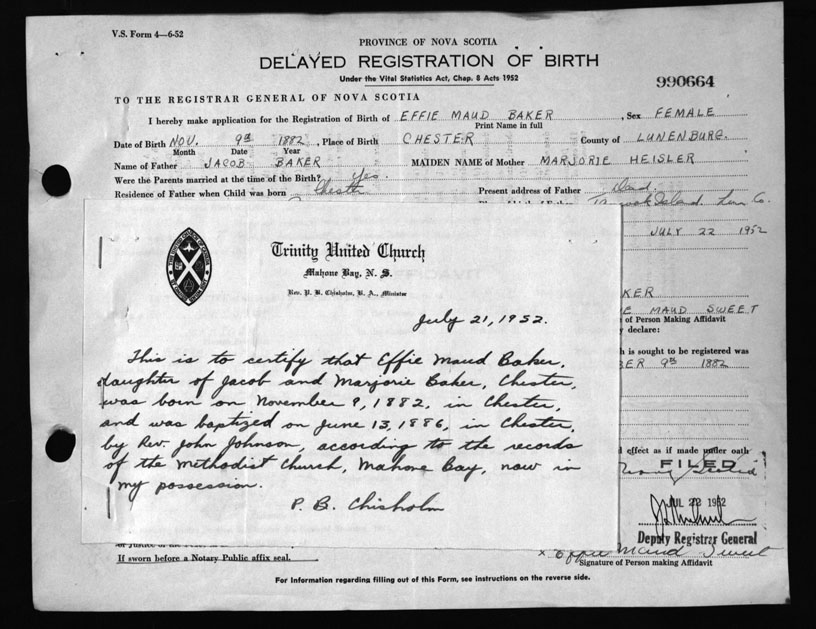 V.S. Form 4—6-52
PROVINCE OF NOVA SCOTIA
DELAYED REGISTRATION OF BIRTH
Under the Vital Statistics Act, Chap. 8 Acts 1952
990664
TO THE REGISTRAR GENERAL OF NOVA SCOTIA
I hereby make application for the Registration of Birth of EFFIE MAUD BAKER, Sex FEMALE
Print Name in full
Date of Birth NOV. 9th 1882, Place of Birth CHESTER County of LUNENBURG.
Month Date Year
Name of Father JACOB BAKER MAIDEN NAME of Mother MARJORIE HEISLER
Were the Parents married at the time of the Birth? Yes.
Residence of Father when Child was born Chester Present address of Father Dead.
Island. Lun Co.
JULY 22 1952
Trinity United Church
Mahone Bay, N. S.
Rev. P. B. Chisholm, B. A., Minister
July 21, 1952.
This is to certify that Effie Maud Baker,
daughter of Jacob and Marjorie Baker, Chester,
was born on November 9, 1882, in Chester,
and was baptized on June 13, 1886, in Chester,
by Rev. John Johnson, according to the records
of the Methodist Church, Mahone Bay, now in
my possession.
P. B. Chisholm
KER
E MAUD SWEET
of Person Making Affidavit
y declare:
h is sought to be registered was
BER 9th 1882
l effect as if made under oath
FILED
JUL 22 1952
Deputy Registrar General
x Effie Maud Sweet
If sworn before a Notary Public affix seal.
Signature of Person making Affidavit
For Information regarding filling out of this Form, see instructions on the reverse side.